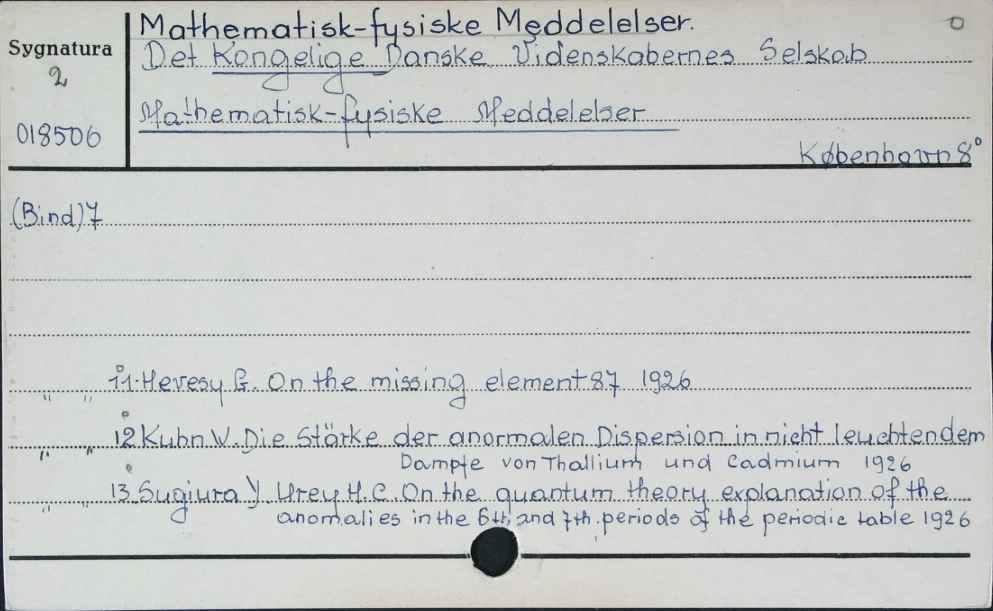 Mathematisk-fysiske Meddelelser.
Sygnatura
2
018506
Det Kongelige Danske Videnskabernes Selskab
Mathematisk-fysiske Meddelelser
København 8°
(Bind) 7
" " 11. Hevesy G. On the missing element 87 1926
" " 12 Kuhn W. Die Stärke der anormalen Dispersion in nicht leuchtendem
Dampfe von Thallium und Cadmium 1926
" " 13. Sugiura Y. Urey H.C. On the quantum theory explanation of the
anomalies in the 6th and 7th periods of the periodic table 1926